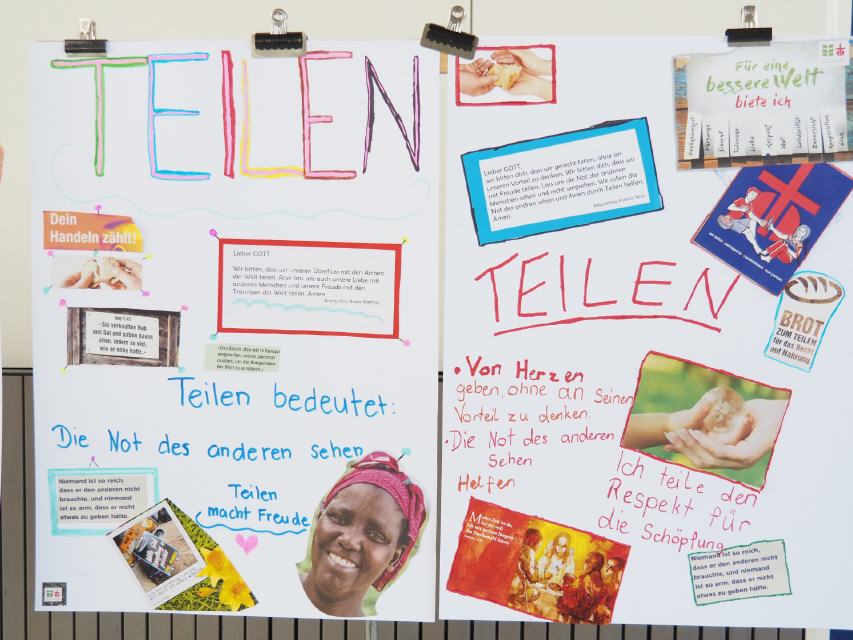 TEILEN
Dein
Handeln zählt!
Lieber GOTT
Wir bitten, dass wir unseren Überfluss mit den Armen
der Welt teilen. Aber lass uns auch unsere Liebe mit
anderen Menschen und unsere Freude mit den
Traurigen der Welt teilen. Amen
«Sie verkauften Hab
und Gut und gaben davon
allen, jedem so viel,
wie er nötig hatte.»
Teilen bedeutet:
Die Not des anderen sehen
Niemand ist so reich,
dass er den anderen nicht
brauchte, und niemand
ist so arm, dass er nicht
etwas zu geben hätte.
Teilen
macht Freude
Für eine
bessere Welt
biete ich
Lieber GOTT,
wir bitten dich, dass wir gerecht teilen, ohne an
unseren Vorteil zu denken. Wir bitten dich, dass wir
mit Freude teilen. Lass uns die Not der anderen
Menschen sehen und nicht wegsehen. Wir sollen die
Not des andren sehen und ihnen durch Teilen helfen.
Amen
TEILEN
BROT
ZUM TEILEN
für das Recht
auf Nahrung.
• Von Herzen
geben, ohne an seinen
Vorteil zu denken.
• Die Not des anderen
Sehen
Helfen
Ich teile den
Respekt für
die Schöpfung
Niemand ist so reich,
dass er den anderen nicht
brauchte, und niemand
ist so arm, dass er nicht
etwas zu geben hätte.